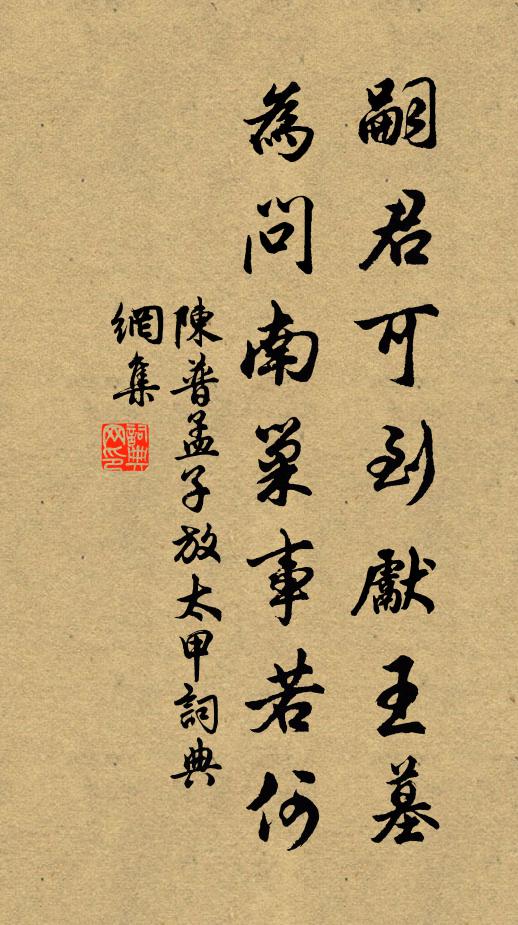 嗣君可到獻王墓
為問南巢事若何
陳普孟子放太甲詞典
網集
詞典
网印